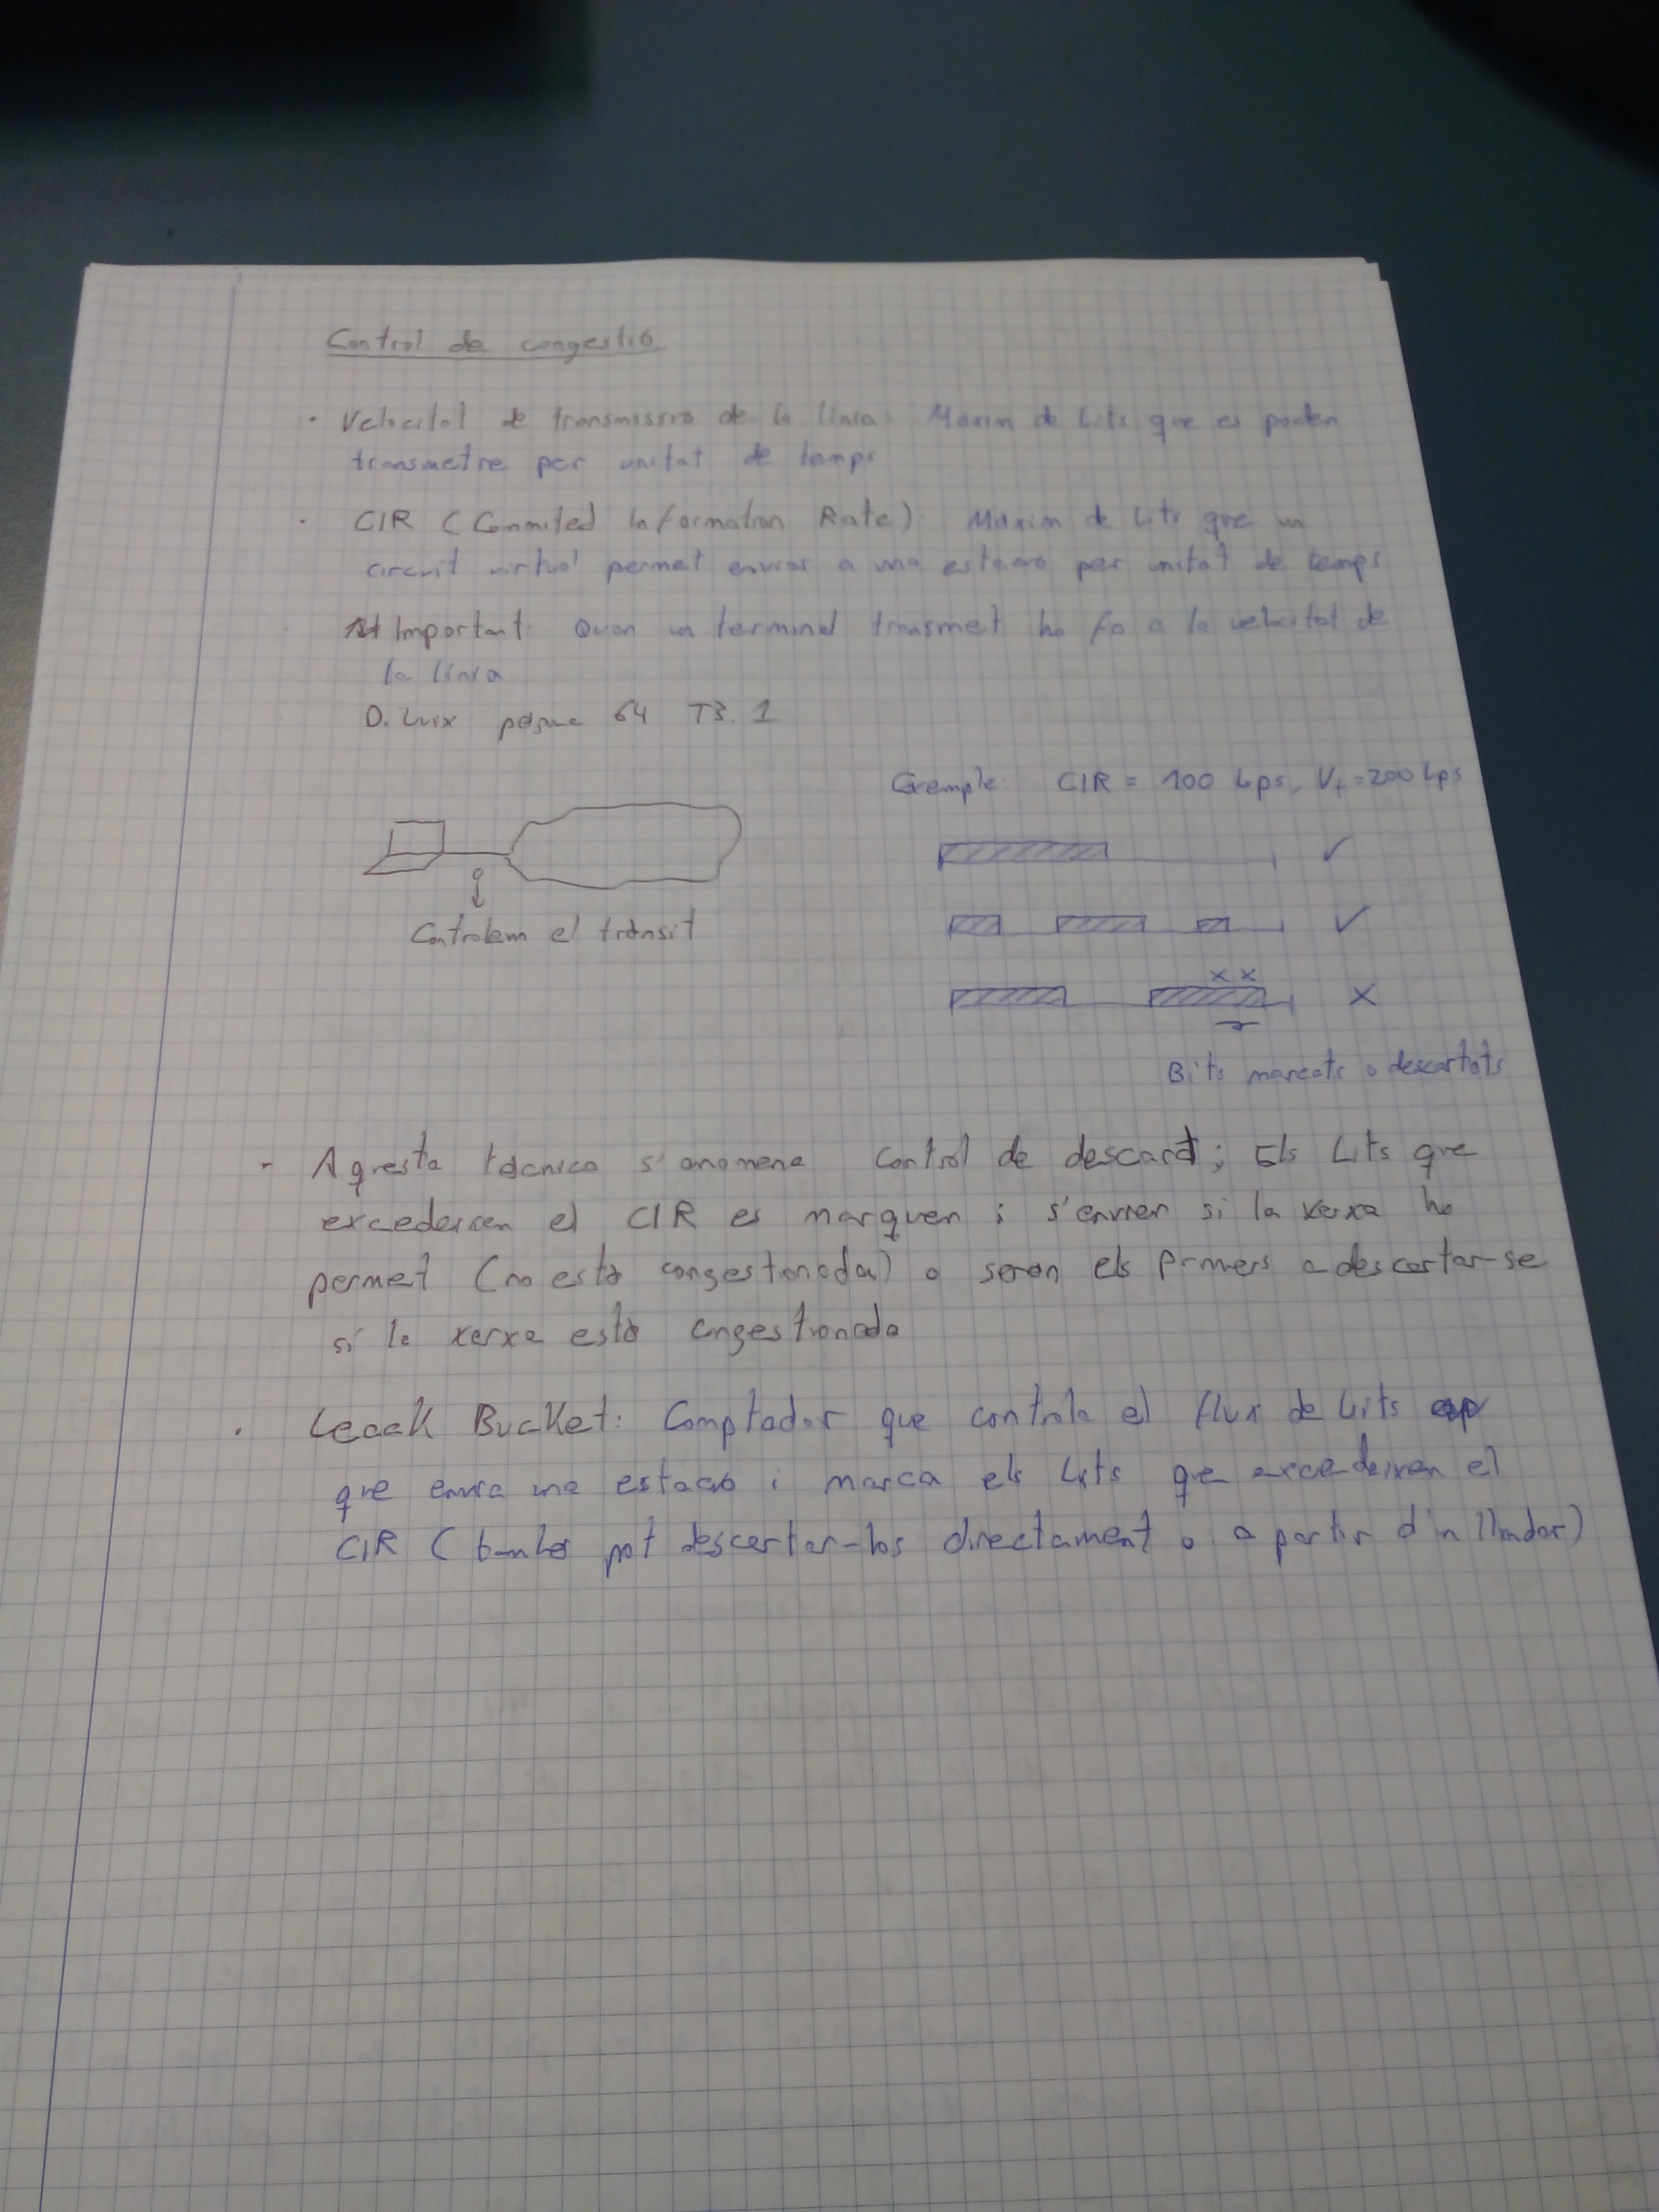 Control de congestió
· Velocitat de transmissio de la línia: Màxim de bits que es poden
transmetre per unitat de temps
· CIR (Commited Information Rate): Màxim de bits que un
circuit virtual permet enviar a una estació per unitat de temps
Important: Quan un terminal transmet ho fa a la velocitat de
la línia
D. Luix pàgina 64 T3. 1
Exemple: CIR = 100 bps, Vt = 200 bps
✓
Controlem el trànsit
✓
x x
x
Bits marcats o descartats
- Aqresta tècnica s'anomena control de descart; Els bits que
excedeixen el CIR es marquen i s'envien si la xarxa ho
permet (no està congestionada) o seran els primers a descartar-se
si la xarxa està congestionada
· Leack Bucket: Comptador que controla el flux de bits
que envia una estació i marca els bits que excedeixen el
CIR (també pot descartar-los directament o a partir d'un llindar)